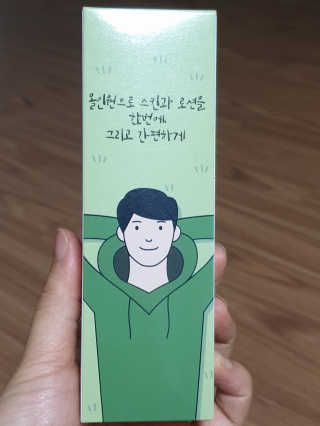 올인원으로 스킨과 로션을
한번에
그리고 간편하게